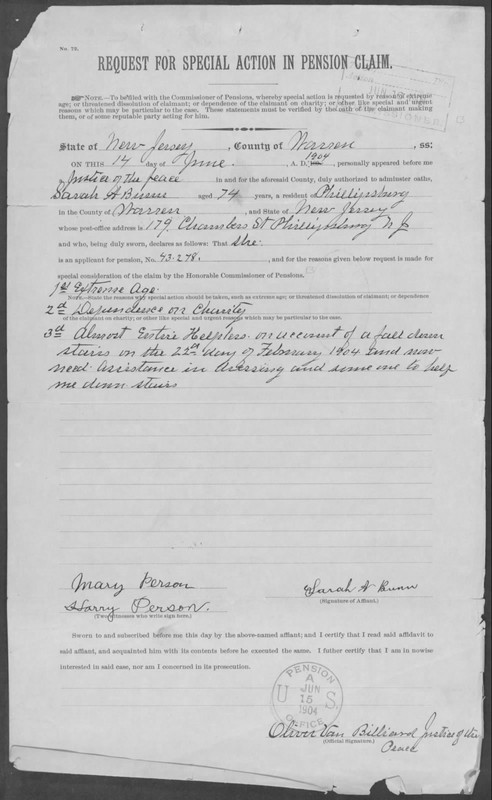 No. 72.
REQUEST FOR SPECIAL ACTION IN PENSION CLAIM.
NOTE.—To be filed with the Commissioner of Pensions, whereby special action is requested by reason of extreme
age; or threatened dissolution of claimant; or dependence of the claimant on charity; or other like special and urgent
reasons which may be particular to the case. These statements must be verified by the oath of the claimant making
them, or of some reputable party acting for him.
State of New Jersey, County of Warren, ss:
ON THIS 14 day of June, A. D. 1904, personally appeared before me
Justice of the peace in and for the aforesaid County, duly authorized to administer oaths,
Sarah A Bunn aged 74 years, a resident Phillipsburg
in the County of Warren, and State of New Jersey
whose post-office address is 179 Chambers St Phillipsburg N J
and who, being duly sworn, declares as follows: That she
is an applicant for pension, No. 43.278., and for the reasons given below request is made for
special consideration of the claim by the Honorable Commissioner of Pensions.
1st Extreme Age.
NOTE.—State the reasons why special action should be taken, such as extreme age; or threatened dissolution of claimant; or dependence
2d Dependence on Charity
of the claimant on charity; or other like special and urgent reasons which may be particular to the case.
3d Almost Entire Helpless. on account of a fall down
stairs on the 22nd day of February 1904 and now
need assistance in dressing and some one to help
me down stairs
Mary Person
Harry Person.
(Two witnesses who write sign here.)
Sarah A Bunn
(Signature of Affiant.)
Sworn to and subscribed before me this day by the above-named affiant; and I certify that I read said affidavit to
said affiant, and acquainted him with its contents before he executed the same. I futher certify that I am in nowise
interested in said case, nor am I concerned in its prosecution.
PENSION
A
U JUN S.
15
1904
OFFICE
Oliver Van Billiard Justice of the
Peace
(Official Signature.)